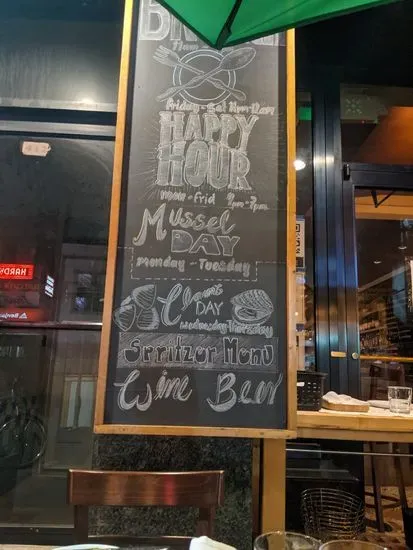 11am
Friday - Sat 11am-12am
HAPPY
HOUR
mon - Frid 2pm - 7pm
Mussel
DAY
Monday - Tuesday
Clams
DAY
Wednesday Thursday
Spritzer Menu
Wine Beer
HARDY